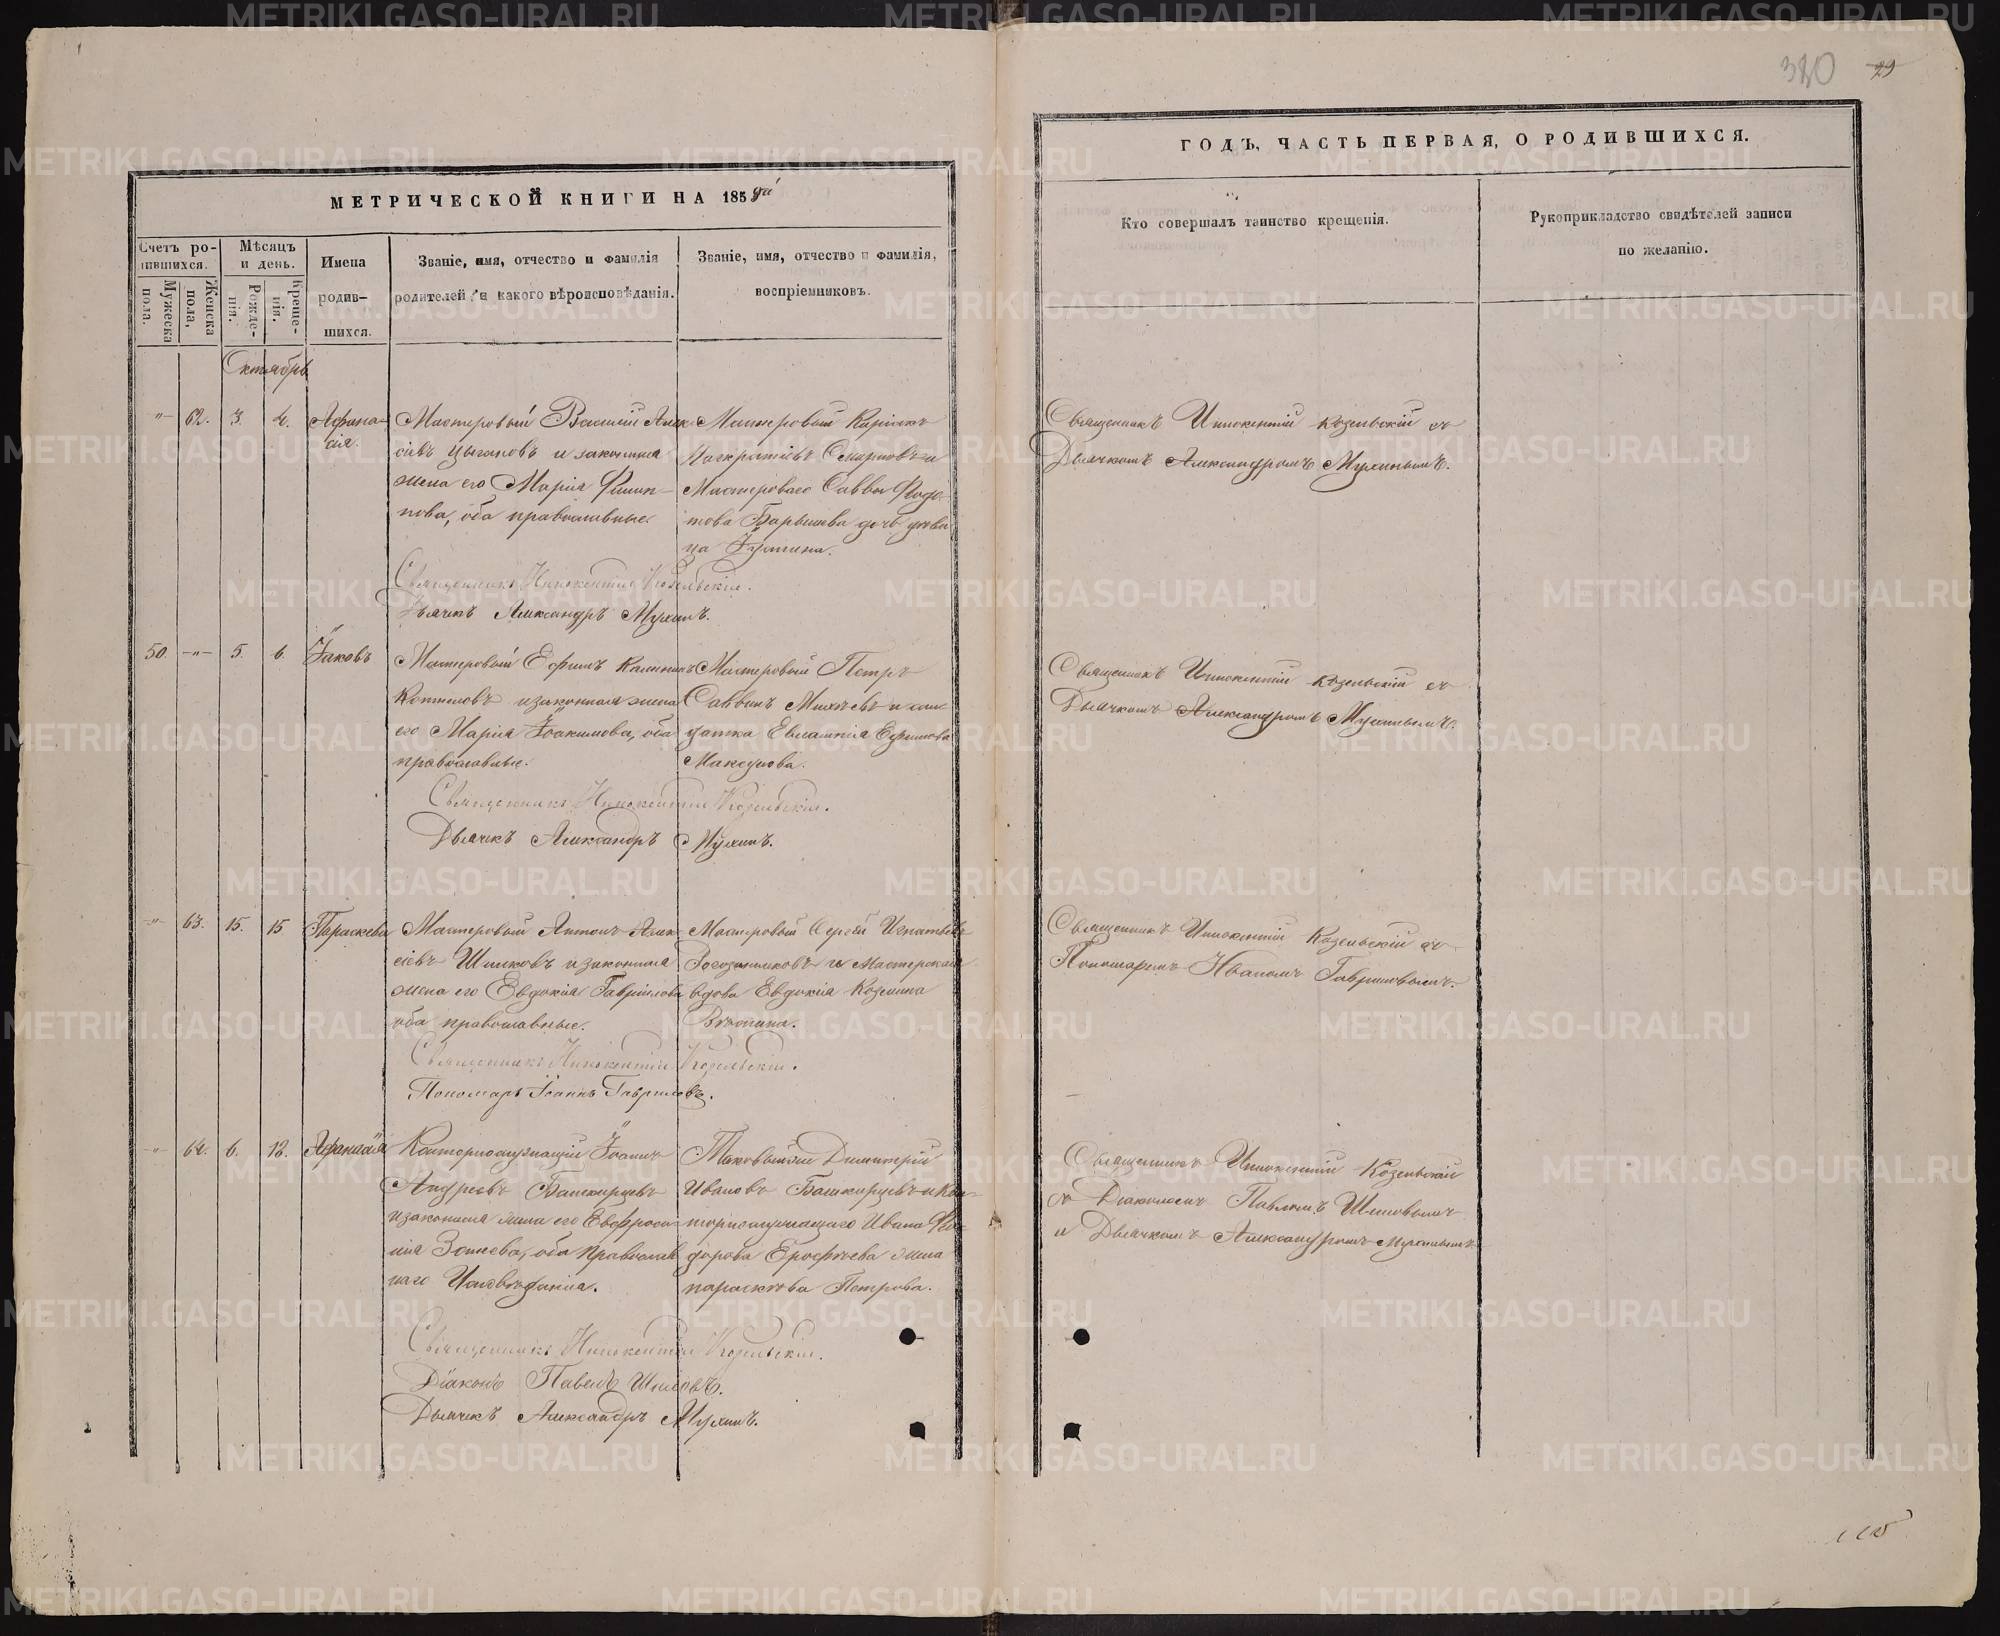 МЕТРИЧЕСКОЙ КНИГИ НА 185
Счетъ родившихся.
Мужеска пола.
Женска пола,
Мѣсяцъ и день.
Рожденія.
Крещенія.
Имена родившихся.
Званіе, имя, отчество и фамилія
родителей, и какого вѣроисповѣданія.
Званіе, имя, отчество и фамилія,
воспріемниковъ.
Октябрь
62. 3. 4. Афанасія.
Мастеровый Василій Алексіевъ Цыгановъ и законная
жена его Марія Филиппова, оба православные.
Мастеровый
Панкратіевъ Смирновъ и
Мастероваго Саввы
дочь девица Іустина.
Священникъ Иннокентій Козельскій.
Дьячекъ Александръ Мухинъ.
50. 5. 6. Іаковъ
Мастеровый Ефимъ
Котеловъ и законная жена
его Марія Іоакимова, оба
православные.
Мастеровый Петръ
Саввинъ Михѣевъ и солдатка Евлампія Ефимова
Священникъ Иннокентій Козельскій.
Дьячекъ Александръ Мухинъ.
63. 15. 15 Параскева
Мастеровый Антонъ Алексіевъ и законная
жена его Евдокія Гавріилова
оба православные.
Мастеровый Сергѣй Игнатьевъ
и Мастерская
вдова Евдокія Козмина
Священникъ Иннокентій Козельскій.
Пономарь Іоаннъ Гавриловъ.
64. 6. 12. Афанасія
Конторнослужащій Іоаннъ
Андреевъ Башкирцевъ
и законная жена его Евфросинія оба православнаго исповѣданія.
Димитрій
Ивановъ Башкирцевъ и конторнослужащаго Ивана Феодорова Ерофѣева жена
параскева Петрова.
Священникъ Иннокентій Козельскій.
Діаконъ Павелъ Шиловъ.
Дьячекъ Александръ Мухинъ.
320
29
ГОДЪ, ЧАСТЬ ПЕРВАЯ, О РОДИВШИХСЯ.
Кто совершалъ таинство крещенія.
Рукоприкладство свидѣтелей записи
по желанію.
Священникъ Иннокентій Козельскій съ
Дьячкомъ Александромъ Мухинымъ.
Священникъ Иннокентій Козельскій съ
Дьячкомъ Александромъ Мухинымъ.
Священникъ Иннокентій Козельскій съ
Пономаремъ Иваномъ Гавриловымъ.
Священникъ Иннокентій Козельскій
съ Діакономъ Павломъ Шиловымъ
и Дьячкомъ Александромъ Мухинымъ
METRIKI.GASO-URAL.RU